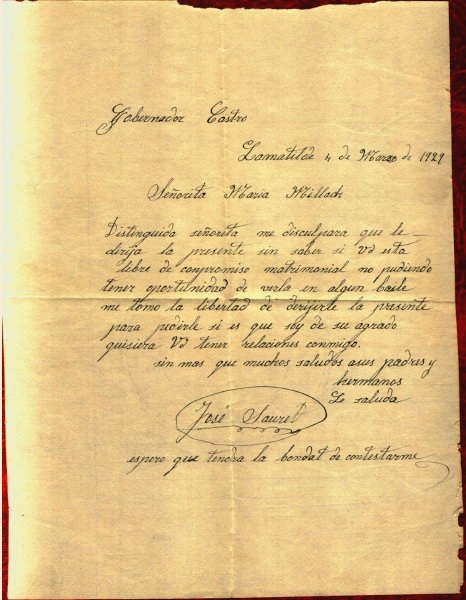 Gobernador Castro
Lamatilde 4 de Marzo de 1929
Señorita Maria Millach
Distinguida señorita me disculpara que le
dirija la presente sin saber si Vd esta
libre de conpromiso matrimonial no pudiendo
tener oportunidad de verla en algun baile
me tomo la libertad de derijerle la presente
para pedirle si es que soy de su agrado
quisiera Vd tener relaciones conmigo.
sin mas que muchos saludos asus padres y
hermanos
Le saluda
José Sauret
espero que tendra la bondat de contestarme